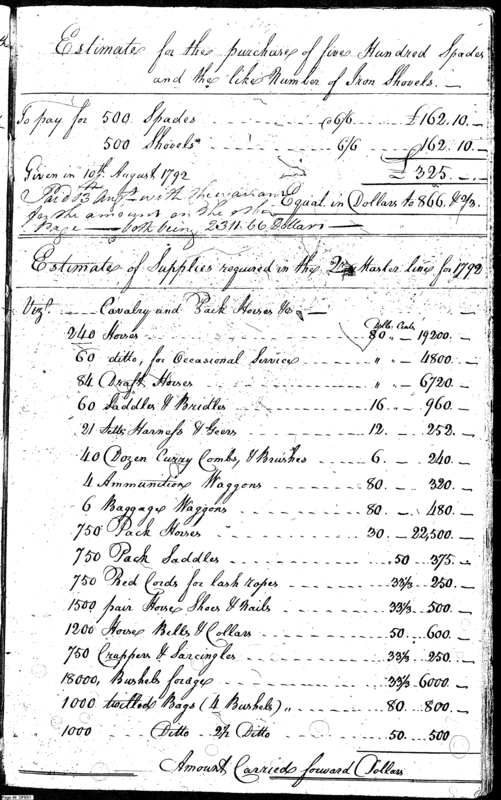 Estimate for the purchase of five Hundred Spades
and the like Number of Iron Shovels.
To pay for 500 Spades @6/6 £162.10.
500 Shovels 6/6 162.10.
Given in 10th. August 1792 £325.
Paid 13 Augt with the warrant Equal in Dollars to 866. &2/3.
for the amount on the other
Page — both being 2311.66 Dollars
Estimate of Supplies required in the Qr Master line for 1792
Vizt. Cavalry and Pack Horses &c
Dolls. Cents
240 Horses 80 " 19200.
60 ditto, for Occasional Service " " 4800.
84 Draft Horses " " 6720.
60 Saddles & Bridles 16. " 960.
21 Setts Harness & Geers 12. 252.
40 Dozen Curry Combs, & Brushes 6. 240.
4 Ammunition Waggons 80. 320.
6 Baggage Waggons 80. 480.
750 Pack Horses 30 22,500.
750 Pack Saddles .50 375.
750 Bed Cords for lash ropes 33⅓ 250.
1500 pair Horse Shoes & Nails 33⅓ 500.
1200 Horse Bells & Collars 50. 600.
750 Cruppers & Sarcingles 33⅓ 250.
18000, Bushels forage 33⅓ 6000.
1000 twilled Bags (4 Bushels) " 80. 800.
1000 Ditto 2½ Ditto 50. 500
Amount Carried forward Dollars